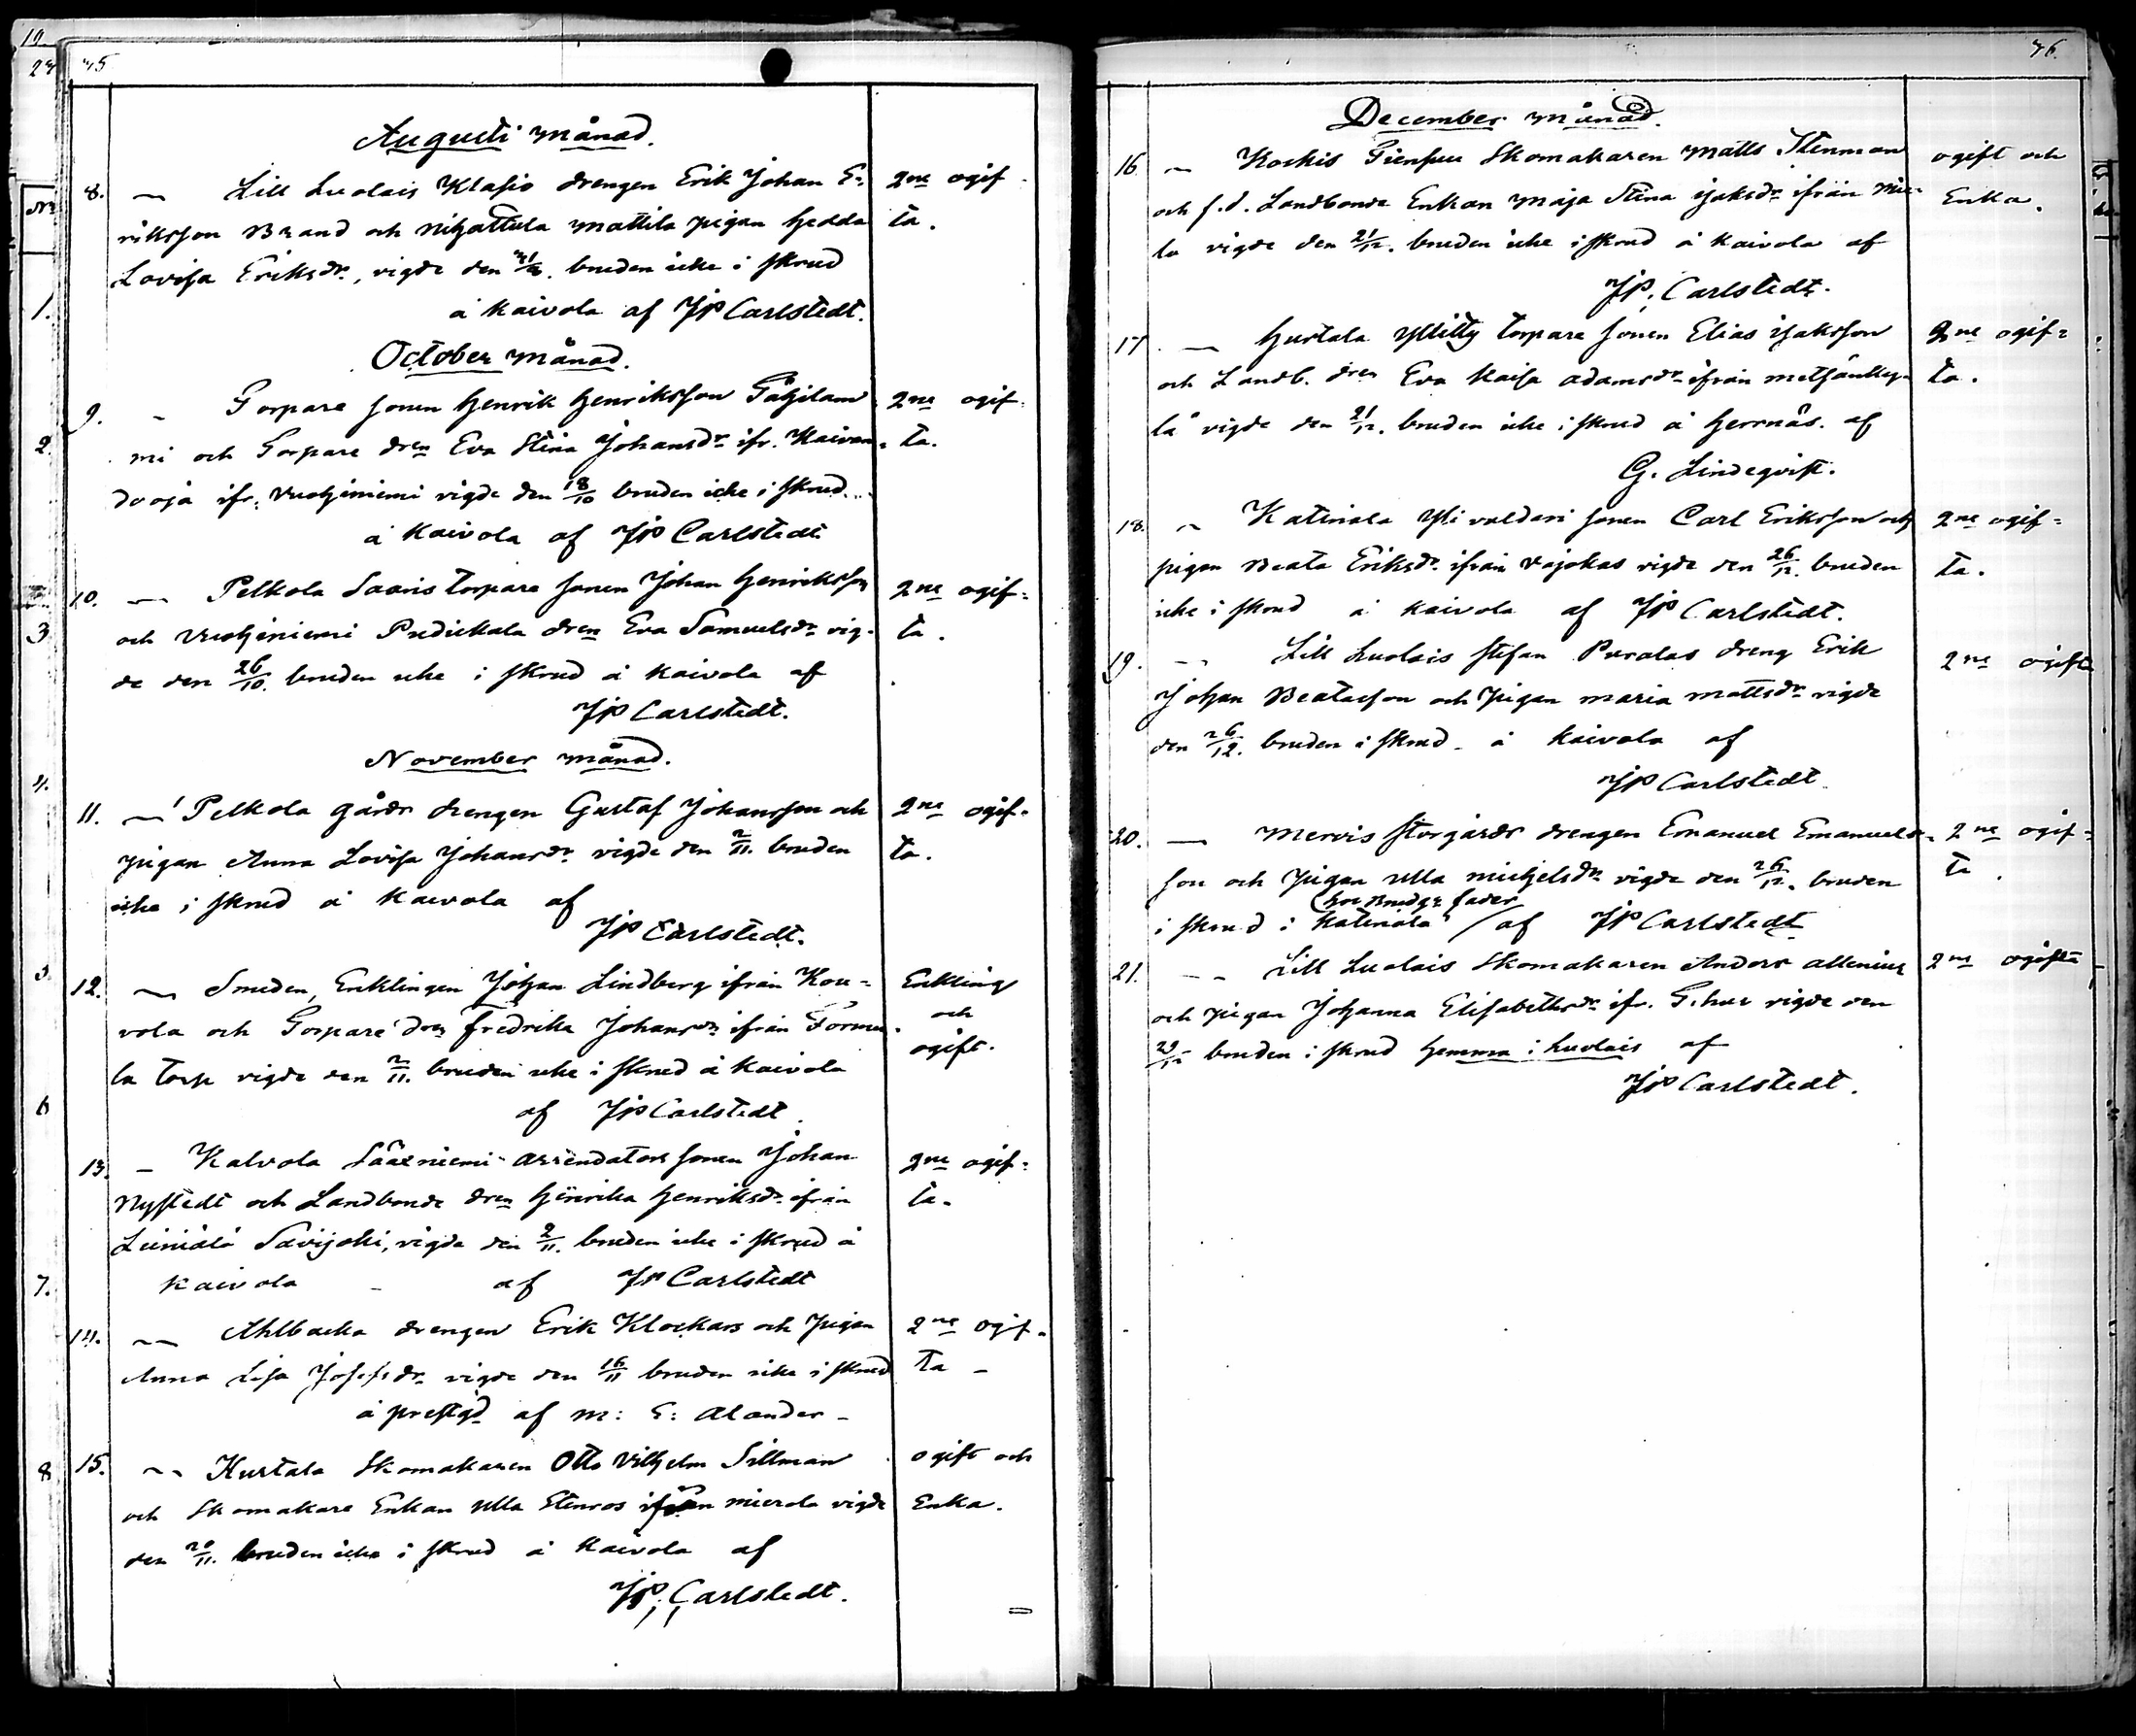 75
Augusti månad.
8. Lill Luolais Klasis drengen Erik Johan E= 2ne ogif
riksson Brand och Nihattula Mattila pigan Hedda ta.
Lovisa Eriksdr, vigde den bruden icke i skrud
å Kaivola af JP Carlstedt.
October månad.
9. Torpare sonen Henrik Henriksson 2ne ogif=
mi och Torpare dren Eva Stina Johansdr ifr. Kaivan= ta.
do oja ifr. Vuohiniemi vigde den 18/10 bruden icke i skrud
å Kaivola af JP Carlstedt
10. Pelkola Saaris torpare sonen Johan Henriksson 2ne ogif=
och Vuohiniemi dren Eva Samuelsdr vig= ta.
de den 26/10. bruden icke i skrud å Kaivola af
JP Carlstedt.
November månad.
11. Pelkola gårds drengen Gustaf Johansson och 2ne ogif=
pigan Anna Lovisa Johansdr vigde den 2/11. bruden ta.
icke i skrud å Kaivola af
JP Carlstedt.
12. Smeden, Enklingen Johan Lindberg ifrån Kou= Enkling
vola och Torpare dren Fredrika Johansdr ifrån och
la torp vigde den 2/11. bruden icke i skrud å Kaivola ogift.
af JP Carlstedt.
13. Kalvola Sääxniemi arrendators sonen Johan 2ne ogif=
Nystedt och Landbonde dren Henrika Henriksdr ifrån ta.
Savijoki, vigde den 2/11. bruden icke i skrud å
Kaivola af JP Carlstedt
14. Ahlbacka drengen Erik Klockars och pigan 2ne ogif=
Anna Lisa Josefsdr vigde den 16/11 bruden icke i skrud ta
å prestgd af M: E: Alander
15. Hurtala Skomakaren Otto Vilhelm Sillman ogift och
och Skomakare Enkan Ulla Stenros ifrån Mierola vigde Enka.
den 20/11. bruden icke i skrud å Kaivola af
JP. Carlstedt.
76.
December månad.
16 Koskis Skomakaren Matts Stenman ogift och
och f.d. Landbonde Enkan Maja Stina Isaksdr ifrån Enka.
la vigde den 21/12. bruden icke i skrud å Kaivola af
JP. Carlstedt.
17 Hurtala Ylitty torpare sonen Elias Isaksson 2ne ogif=
och Landb. dren Eva Kaisa Adamsdr ifrån Metsänkyy= ta.
lä vigde den 21/12. bruden icke i skrud å Herrnäs. af
G. Lindeqvist.
18. Katinala Yli valdari sonen Carl Eriksson och 2ne ogif=
pigan Beata Eriksdr ifrån vigde den 26/12. bruden ta.
icke i skrud å Kaivola af JP Carlstedt.
19. Lill Luolais Stefan Puralas dreng Erik 2ne ogifta
Johan Beatasson och pigan Maria Mattsdr vigde
den 26/12. bruden i skrud å Kaivola af
JP Carlstedt
20. Mervis Storgårds drengen Emanuel Emanuels= 2ne ogif=
son och pigan Ulla Michelsdr vigde den 26/12. bruden ta
hos Brudgs fader
i skrud i Katinala af JP Carlstedt
21. Lill Luolais Skomakaren Anders Allenius 2ne ogifta
och pigan Johanna Elisabethsdr ifr. vigde den
29/12 bruden i skrud hemma i Luolais af
JP Carlstedt.